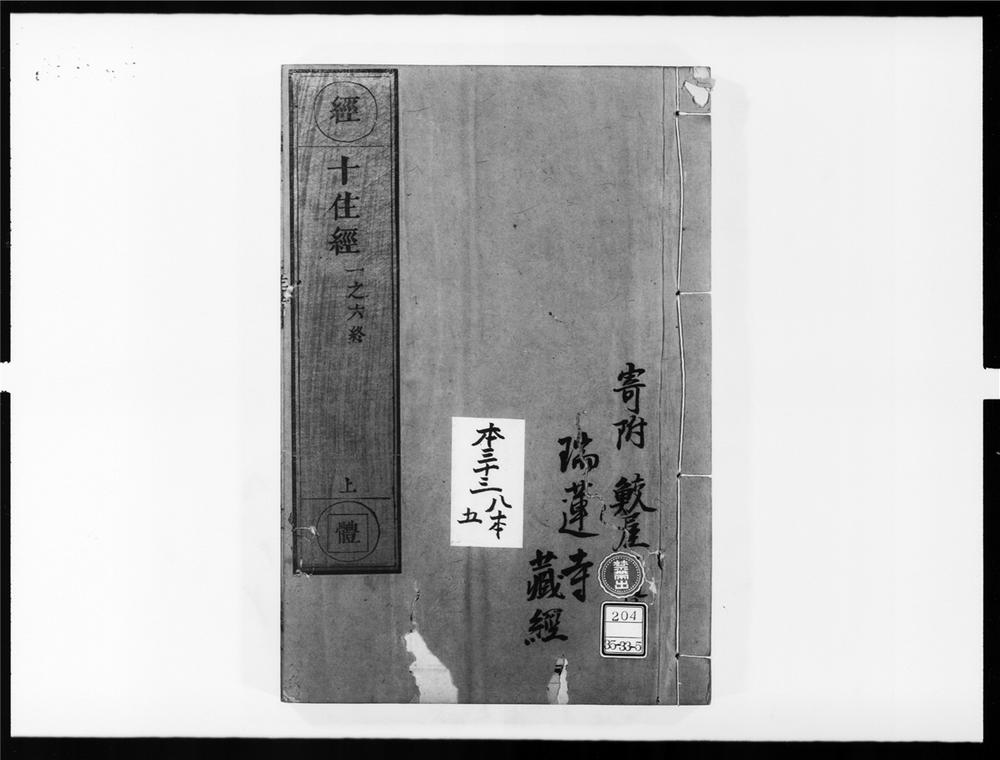 經
十住經 一之六終
上
體
寄附 鮫屋
瑞蓮寺
藏經
本三十三
八本
五
禁帶出
204
35-33-5